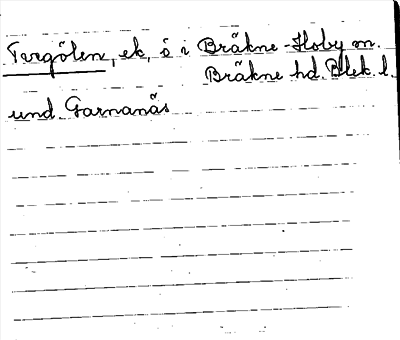 Torgölen, ek, ö i Bräkne-Hoby sn.
Bräkne hd. Blek. l.
und. Garnanäs